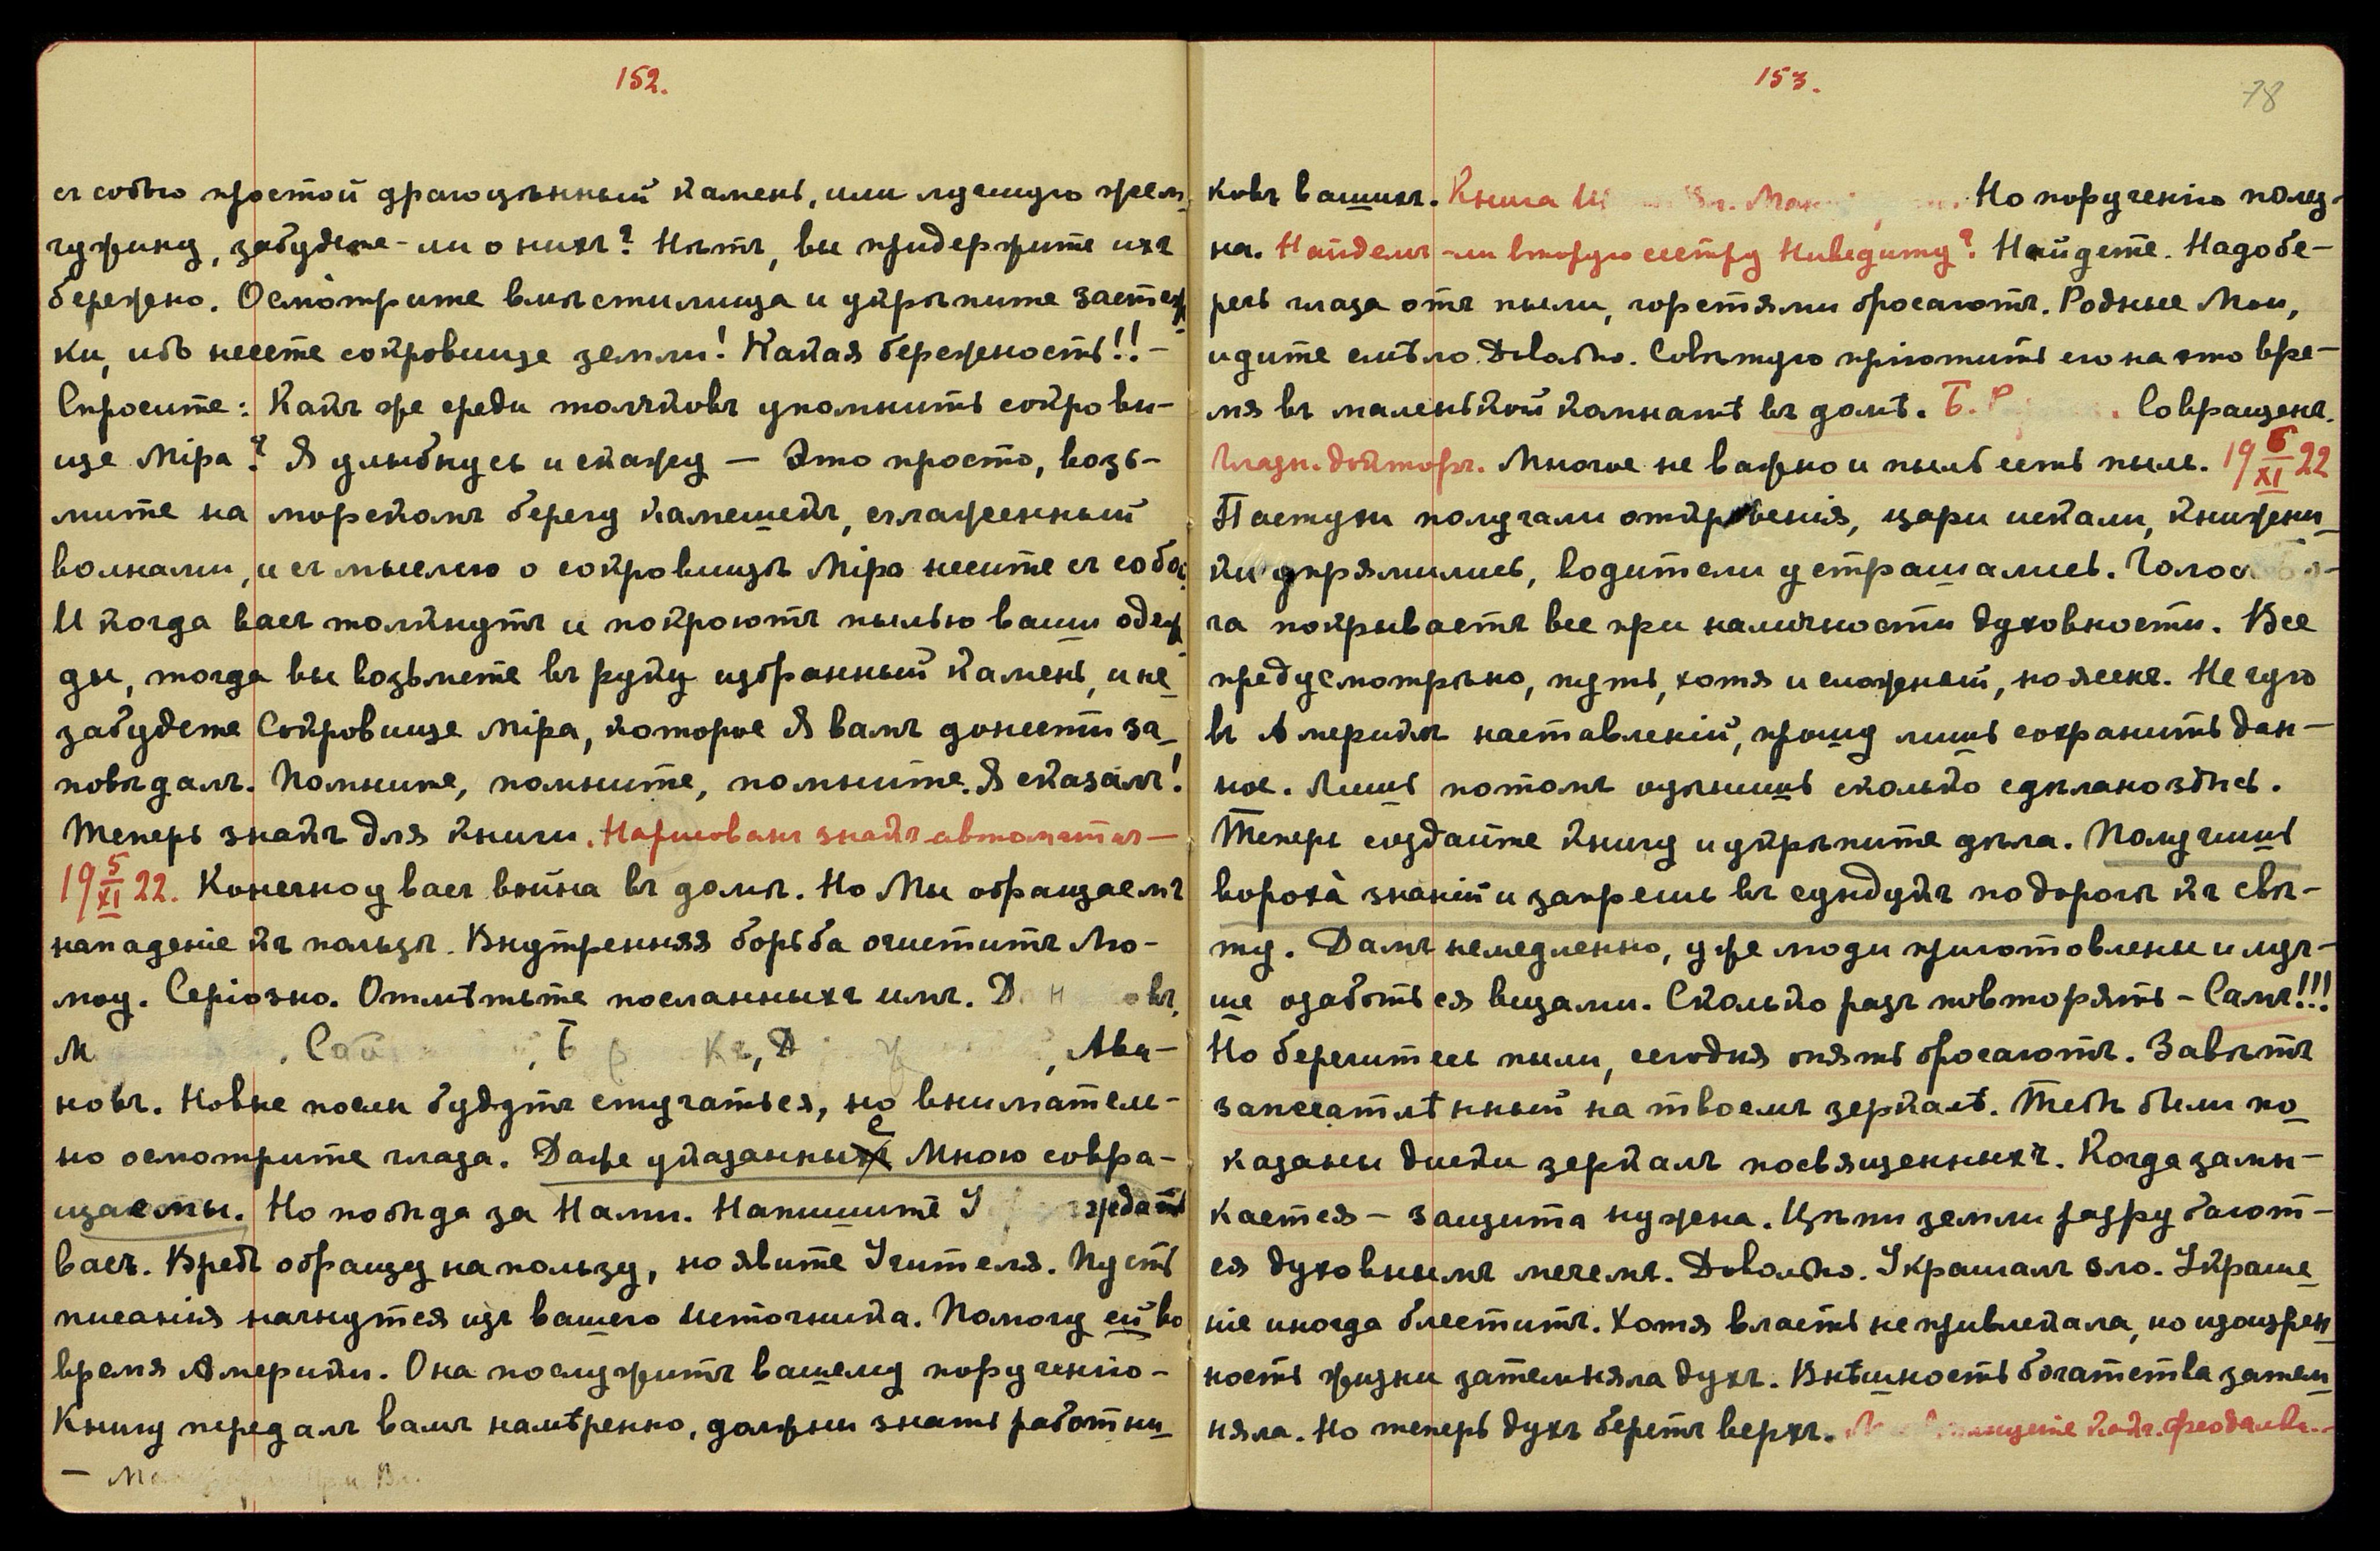 152.
съ собою простой драгоцѣнный камень, или лучшую жем-
чужину, забудете-ли о нихъ? Нѣтъ, вы придержите ихъ
бережно. Осмотрите вмѣстилища и укрѣпите застеж-
ки, ибо несете сокровище земли! Какая бережность!! –
Спросите: Какъ же среди толчковъ упомнить сокрови-
ще Міра? Я улыбнусь и скажу — Это просто, возь-
мите на морскомъ берегу камешекъ, сглаженный
волнами, и съ мыслею о сокровищѣ Міра несите съ собой
И когда васъ толкнутъ и покроютъ пылью ваши одеж-
ды, тогда вы возьмете въ руку избранный камень, и не
забудете Сокровище Міра, которое Я вамъ донести за-
повѣдалъ. Помните, помните, помните. Я сказалъ!
Теперь знакъ для книги. Нарисованъ знакъ автоматич—
19 5/XI 22. Конечно у васъ война въ домѣ. Но Мы обращаемъ
нападеніе къ пользѣ. Внутренняя борьба очиститъ Лю-
моу. Серіозно. Отмѣтьте посланныхъ имъ. Д н овъ,
М , Сай , Б р къ, Д у , Ава-
новъ. Новые послы будутъ стучаться, но вниматель-
но осмотрите глаза. Даже указанные Мною совра-
щаемы. Но побѣда за Нами. Напишите У ждать
васъ. Вредъ обращу на пользу, но явите Учителя. Пусть
писанія начнутся изъ вашего Источника. Помогу ей во
время Америки. Она послужитъ вашему порученію –
Книгу передалъ вамъ намѣренно, должны знать работни-
153.
78
ковъ вашихъ. Книга Но порученію полез-
на. Найдемъ-ли вторую сестру Ниведиту? Найдете. Надо бе-
речь глаза отъ пыли, горстями бросаютъ. Родные Мои,
идите смѣло. Довольно. Совѣтую пріютить его на это вре-
мя въ маленькой комнатѣ въ домѣ. Б. Р . Совращенъ.
Глазн. докторъ. Многое не важно и пыль есть пыль. 19 6/XI 22
Пастухи получали откровенія, цари искали, книжни-
ки упрямились, водители устрашались. Голос Бо-
га покрываетъ все при наличности духовности. Все
предусмотрѣно, путь, хотя и сложный, но ясенъ. Не чую
въ Америкѣ наставленій, прошу лишь сохранить дан-
ное. Лишь потомъ оцѣнишь сколько сдѣлано здѣсь.
Теперь создайте книгу и укрѣпите дѣла. Получишь
вороха̀ знаній и запрешь въ сундукъ по дорогѣ къ свѣ-
ту. Дамъ немедленно, уже люди приготовлены и луч-
ше озаботься вещами. Сколько разъ повторять – Самъ!!!
Но берегитесь пыли, сегодня опять бросаютъ. Завѣтъ
запечатлѣнный на твоемъ зеркалѣ. Тебѣ были по-
казаны диски зеркалъ посвященныхъ. Когда замы-
кается – защита нужна. Цѣпи земли разрубают-
ся духовнымъ мечемъ. Довольно. Украшалъ зло. Украше-
ніе иногда блеститъ. Хотя власть не привлекала, но изощрен-
ность жизни затемняла духъ. Внѣшность богатства затем-
няла. Но теперь духъ беретъ верхъ.